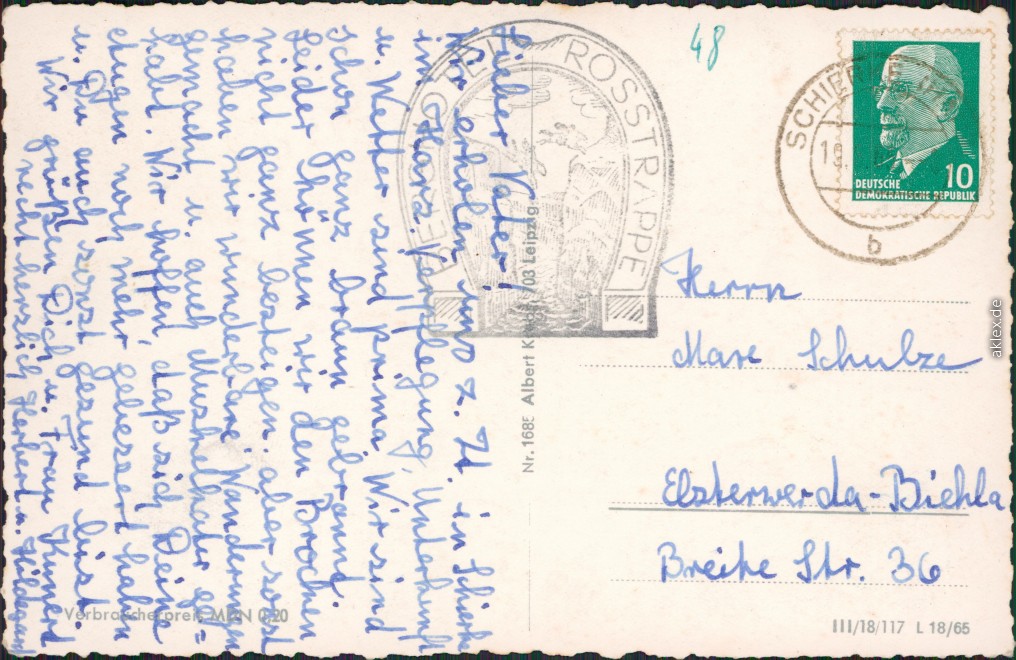 Lieber Vater!
Wir erholen uns z. Zt. in Schierke
im Harz. Verpflegung, Unterkunft
u. Wetter sind prima. Wir sind
schon ganz braun gebrannt.
Leider können wir den Brocken
nicht ganz besteigen aber sonst
haben wir wunderbare Wanderungen
gemacht u. auch Muskelkater ge=
habt. Wir hoffen, daß sich Deine
Augen noch mehr gebessert haben
u. Du auch sonst gesund bist.
Wir grüßen Dich u. Frau Kunert
recht herzlich Herbert u. Hildegard
48
HOTEL ROSSTRAPPE
SCHIERKE
b
10
DEUTSCHE
DEMOKRATISCHE REPUBLIK
Herrn
Max Schulze
Elsterwerda-Biehla
Breite Str. 36
Nr. 1685 Albert 03 Leipzig
Verbraucherpreis MDN 0,20
III/18/117 L 18/65
aklex.de